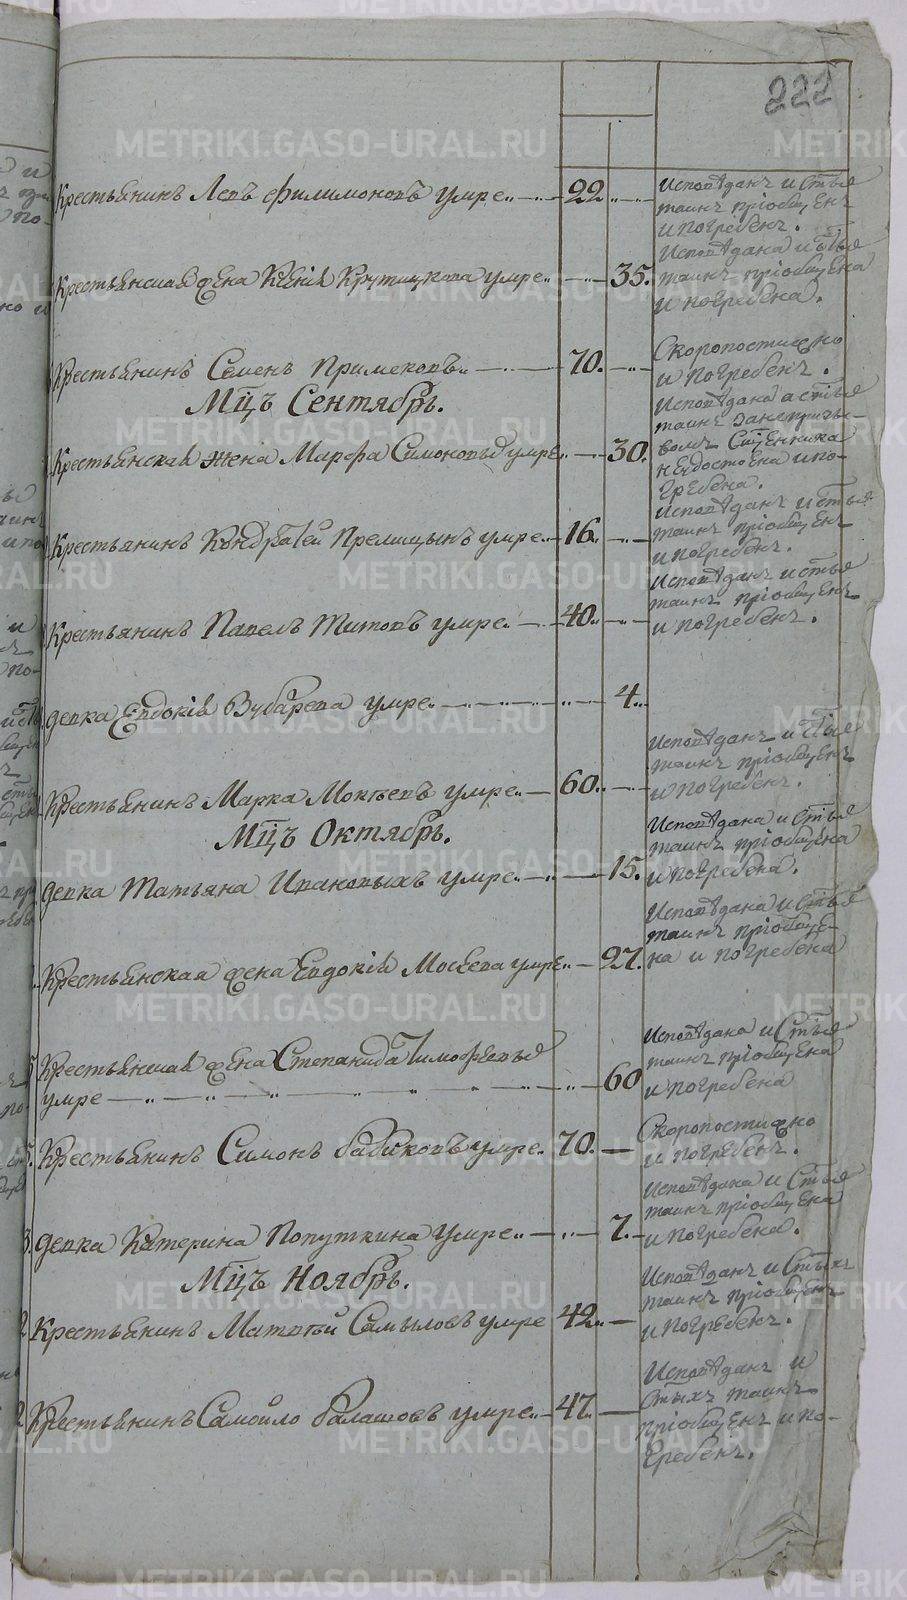 222
Крестьянинъ Левъ Филимоновъ умре 22
Исповѣданъ и Стыя
таинъ пріобщенъ
и погребенъ.
Крестьянская жена Ксенія Крутицкова умре 35.
Исповѣдана и Стыя
таинъ пріобщена
и погребена.
Крестьянинъ Семенъ Примековъ 70.
Скоропостижно
и погребенъ.
Мцъ Сентябрь.
Крестьянская жена Марфа Симоновыя умре 30.
Исповѣдана а стыя
таинъ
Сщенника
неудостоена и по-
гребена.
Крестьянинъ Кондратей Прелицынъ умре 16
Исповѣданъ и стыя
таинъ пріобщенъ
и погребенъ.
Крестьянинъ Павелъ Титовъ умре 40
Исповѣданъ и стыя
таинъ пріобщенъ
и погребенъ.
девка Евдокія Зубарева умре 4
Крестьянинъ Марка Мокѣевъ умре 60
Исповѣданъ и Стыя
таинъ пріобщенъ
и погребенъ.
Мцъ Октябрь.
девка Татьяна Ивановыхъ умре 15.
Исповѣдана и Стыя
таинъ пріобщена
и погребена.
Крестьянская жена Евдокія Мосѣева умре 27.
Исповѣдана и Стыя
таинъ пріобще-
на и погребена
Крестьянская жена Степанида Тимофѣевыя
умре 60
Исповѣдана и Стыя
таинъ пріобщена
и погребена
Крестьянинъ Симонъ Бабиковъ умре 70.
Скоропостижно
и погребенъ.
девка Катерина Попуткина умре 7.
Исповѣдана и Стыя
таинъ пріобщена
и погребена.
Мцъ Ноябрь.
Крестьянинъ Матвѣй Самыловъ умре 42
Исповѣданъ и Стыхъ
таинъ пріобщенъ
и погребенъ.
Крестьянинъ Самойло Балашовъ умре 47
Исповѣданъ и
Стыхъ таинъ
пріобщенъ и по-
гребенъ.
METRIKI.GASO-URAL.RU